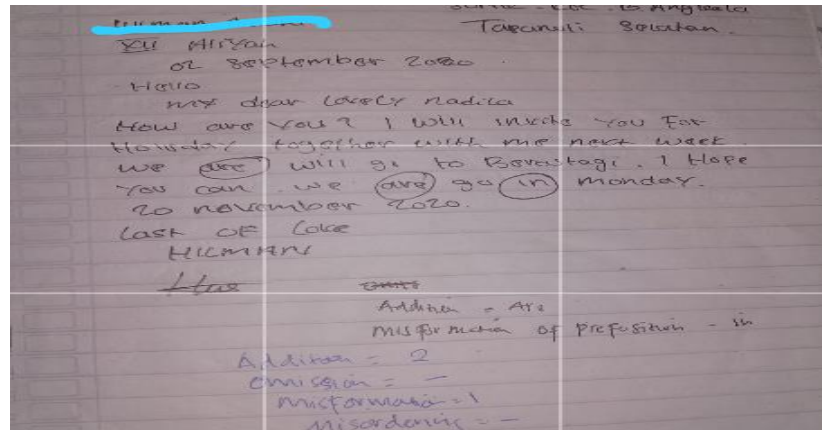 Tapanuli Selatan.
XII Aliyah
02 September 2020.
Hallo
my dear Lovely nadila
How are you? I will invite you For
Holiday together with me next week.
we are will go to Berastagi. I Hope
You can. we are go in monday.
20 november 2020.
Last OF Love
HILMANI
Addition = Are
misformation of prefosition - in
Addition = 2
omission = -
misformation = 1
misordering = -